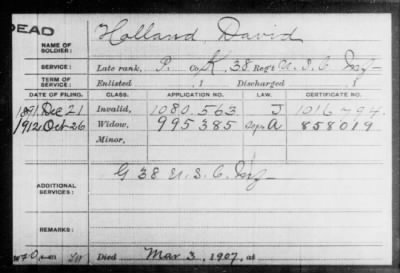 DEAD
NAME OF SOLDIER: Holland David
SERVICE: Late rank, P. Co. K, 38 Reg't U.S.C. Inf
TERM OF SERVICE: Enlisted , 1 Discharged , 1
DATE OF FILING. CLASS. APPLICATION NO. LAW. CERTIFICATE NO.
1891 Dec 21 Invalid, 1080.563 J 1016.794
1912 Oct 26 Widow, 995385 A 858019
Minor,
ADDITIONAL SERVICES: G 38 U.S.C. Inf
REMARKS:
Died Mar 3, 1907, at